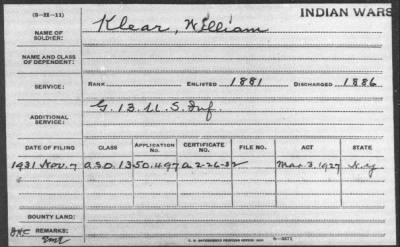 (3-21-11)
INDIAN WARS
NAME OF SOLDIER: Klear, William
NAME AND CLASS OF DEPENDENT:
SERVICE: RANK ENLISTED 1881 DISCHARGED 1886
ADDITIONAL SERVICE: G. 13 U.S. Inf.
DATE OF FILING CLASS APPLICATION NO. CERTIFICATE NO. FILE NO. ACT STATE
1931 Nov. 7 a.s.o. 1350.497 a. 2-26-32 Mar. 3, 1927 N.Y
BOUNTY LAND:
REMARKS: